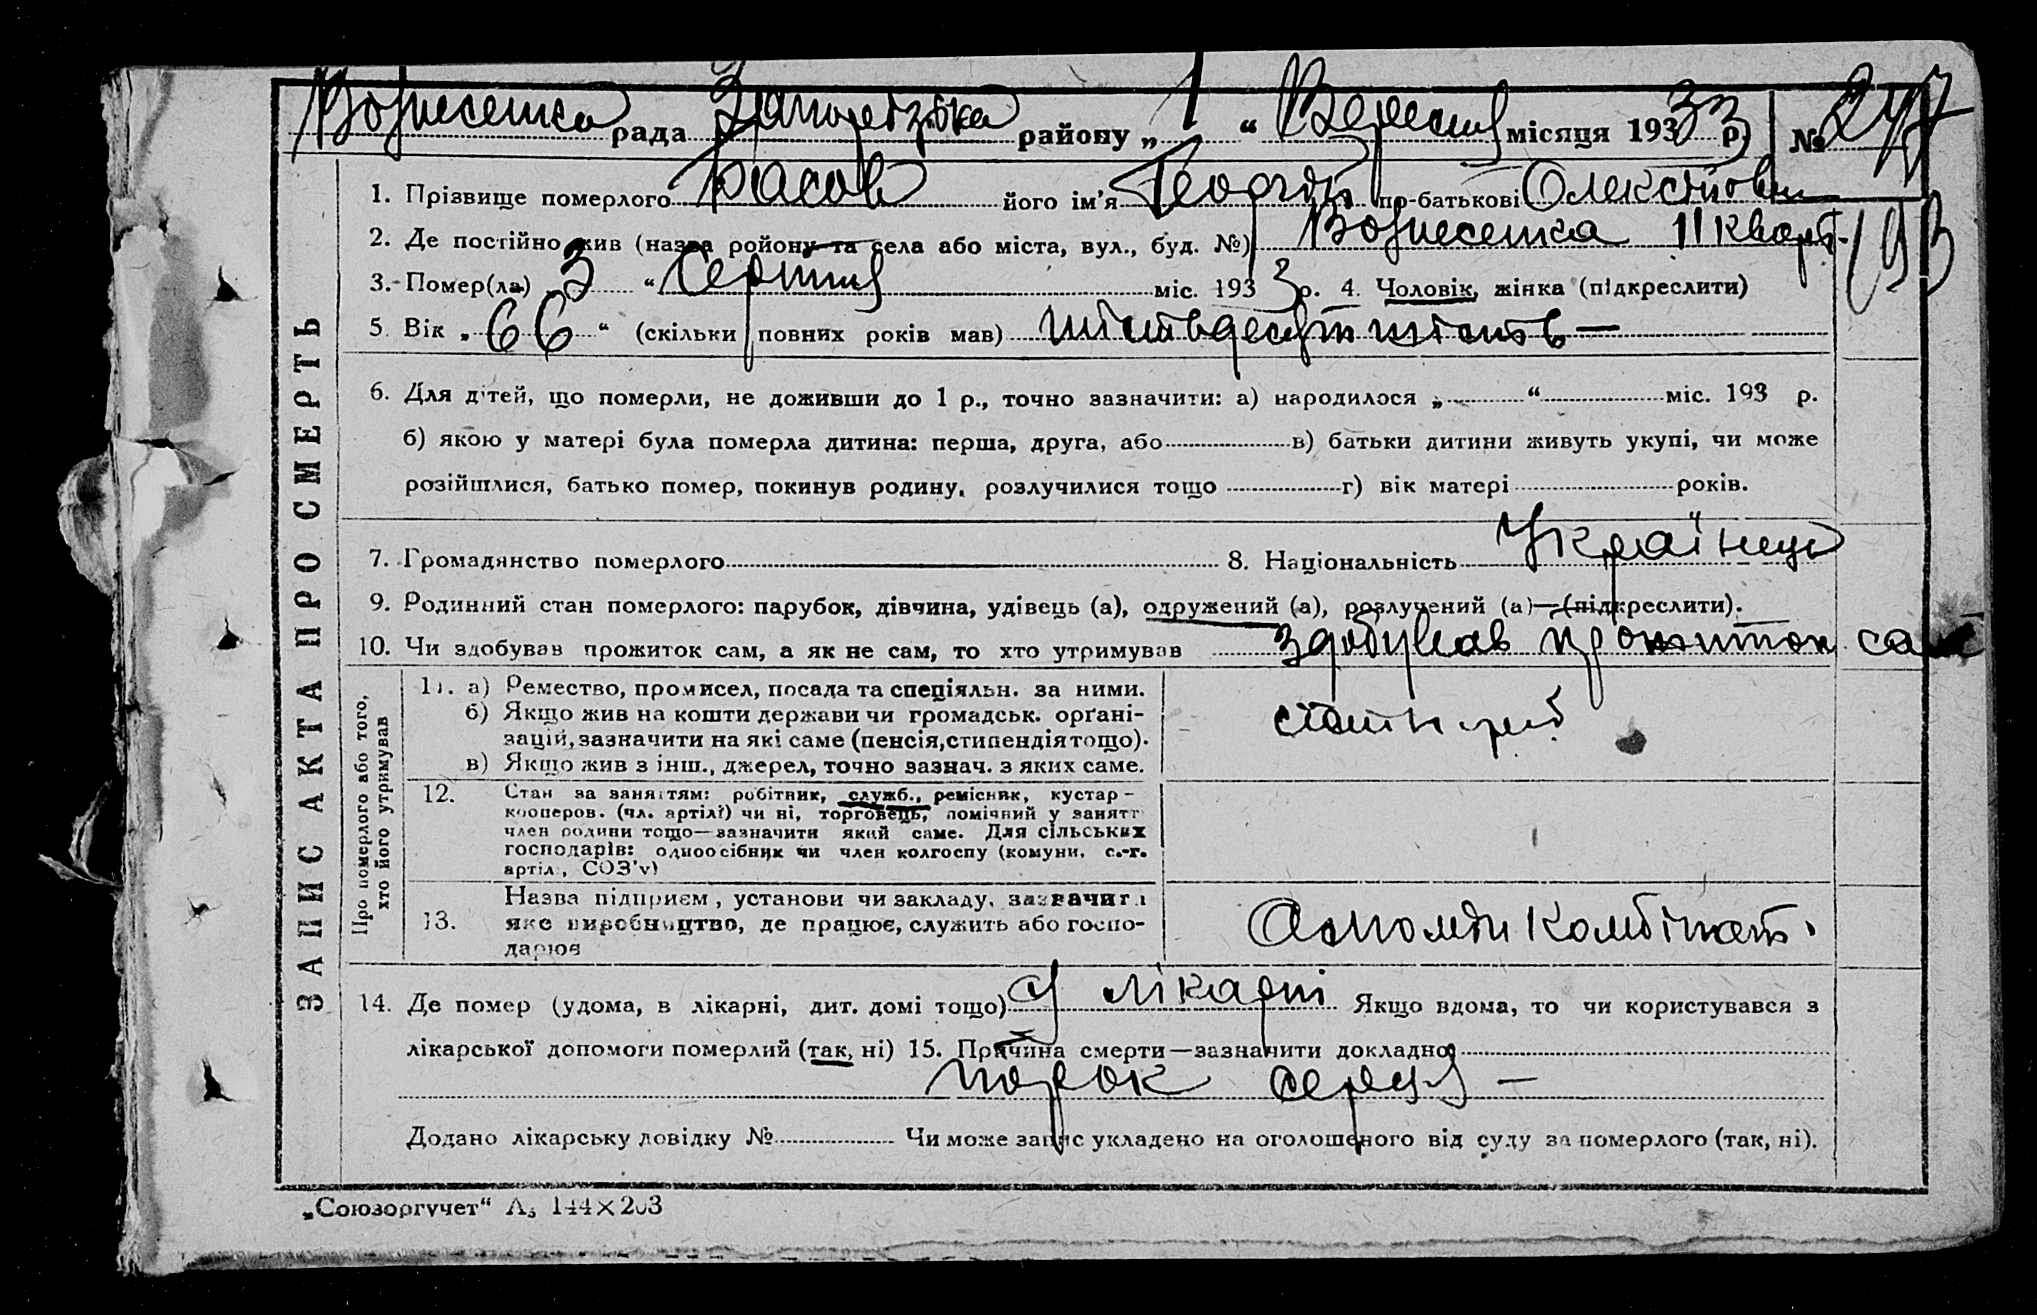 Вознесенка рада Запорізька району „ 1 “ Вересня місяця 1933 р. № 247
193
ЗАПИС АКТА ПРО СМЕРТЬ
1. Прізвище померлого Расов його ім'я Георгій по-батькові Олексійович
2. Де постійно жив (назва ройону та села або міста, вул., буд. №) Вознесенка 11 кварт.
3. Помер(ла) 3 “ Серпня міс. 1933 р. 4. Чоловік, жінка (підкреслити)
5. Вік „ 66 “ (скільки повних років мав) шістьдесят шість —
6. Для дітей, що померли, не доживши до 1 р., точно зазначити: а) народилося „ “ міс. 193 р.
б) якою у матері була померла дитина: перша, друга, або в) батьки дитини живуть укупі, чи може
розійшлися, батько помер, покинув родину, розлучилися тощо г) вік матері років.
7. Громадянство померлого 8. Національність Українець
9. Родинний стан померлого: парубок, дівчина, удівець (а), одружений (а), розлучений (а)—(підкреслити).
10. Чи здобував прожиток сам, а як не сам, то хто утримував здобував прожиток сам
Про померлого або того,
хто його утримував
11. а) Ремество, промисел, посада та спеціяльн. за ними.
б) Якщо жив на кошти держави чи громадськ. орґані-
зацій, зазначити на які саме (пенсія, стипендія тощо).
в) Якщо жив з інш., джерел, точно зазнач. з яких саме.
12. Стан за заняттям: робітник, служб., ремісник, кустар-
кооперов. (чл. артілі) чи ні, торговець, помічний у занятт
член родини тощо—зазначити який саме. Для сільських
господарів: одноосібник чи член колгоспу (комуни, с.-г.
артіл., СОЗ'у)
13. Назва підприєм, установи чи закладу, зазначити
яке виробництво, де працює, служить або госпо-
дарює
Комбінат.
14. Де помер (удома, в лікарні, дит. домі тощо) У лікарні Якщо вдома, то чи користувався з
лікарської допомоги померлий (так, ні) 15. Причина смерти—зазначити докладно
порок серця —
Додано лікарську довідку № Чи може запис укладено на оголошеного від суду за померлого (так, ні).
„Союзоргучет“ А₅ 144×203